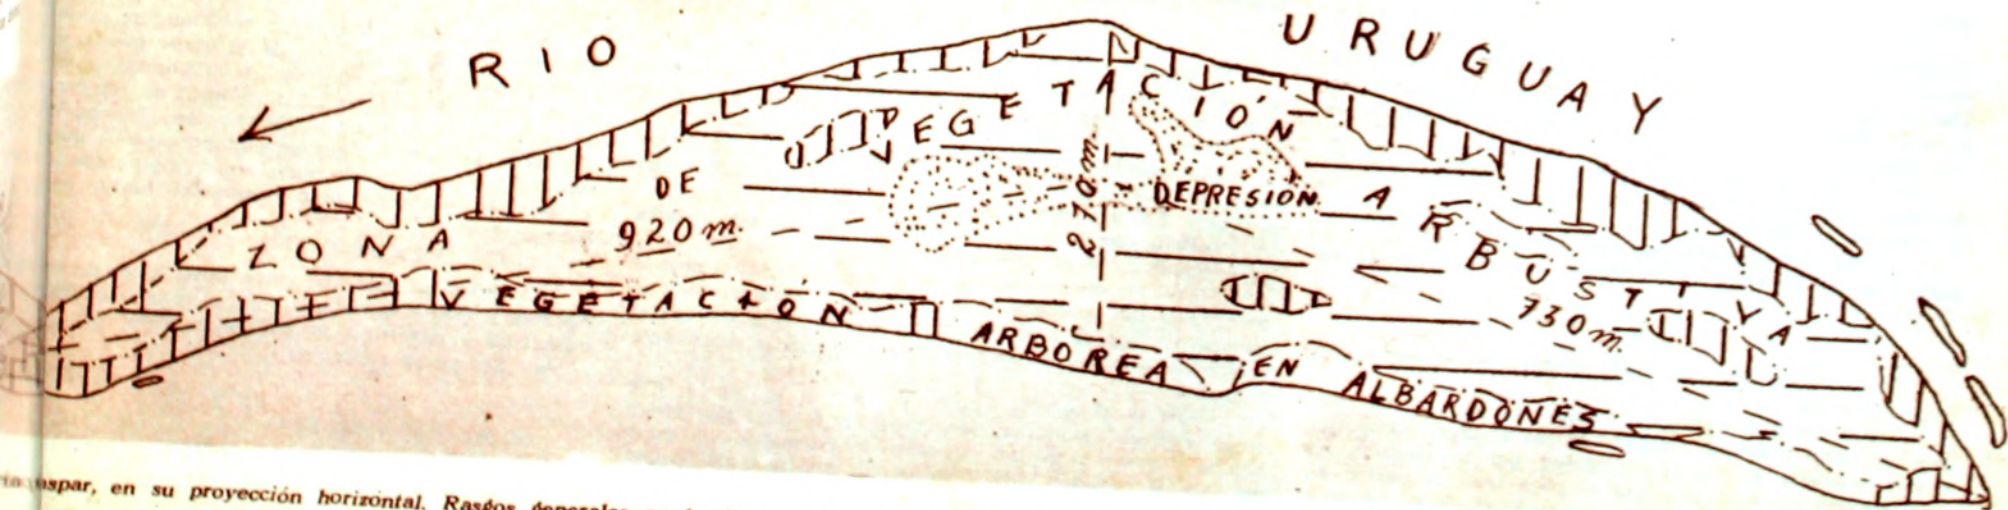 RIO URUGUAY
ZONA DE VEGETACIÓN ARBUSTIVA
DEPRESION
920 m.
270 m.
730 m.
VEGETACION ARBOREA EN ALBARDONES
aspar, en su proyección horizontal. Rasgos